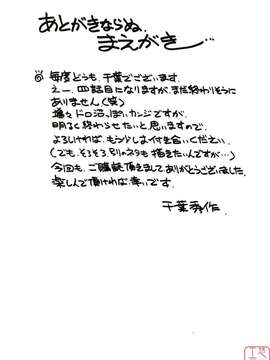 あとがきならぬ、
まえがき…
◎ 毎度どうも、千葉でございます。
えー、四話目になりますが、まだ終わりそうに
ありません(笑)
増々ドロ沼っぽいカンジですが、
明るく終わらせたいと思いますので、
よろしければ、もう少しお付き合いください。
(でも、そろそろ別のネタも描きたいんですが…)
今回も、ご購読頂きまして、ありがとうございました。
楽しんで頂ければ幸いです。
千葉秀作.